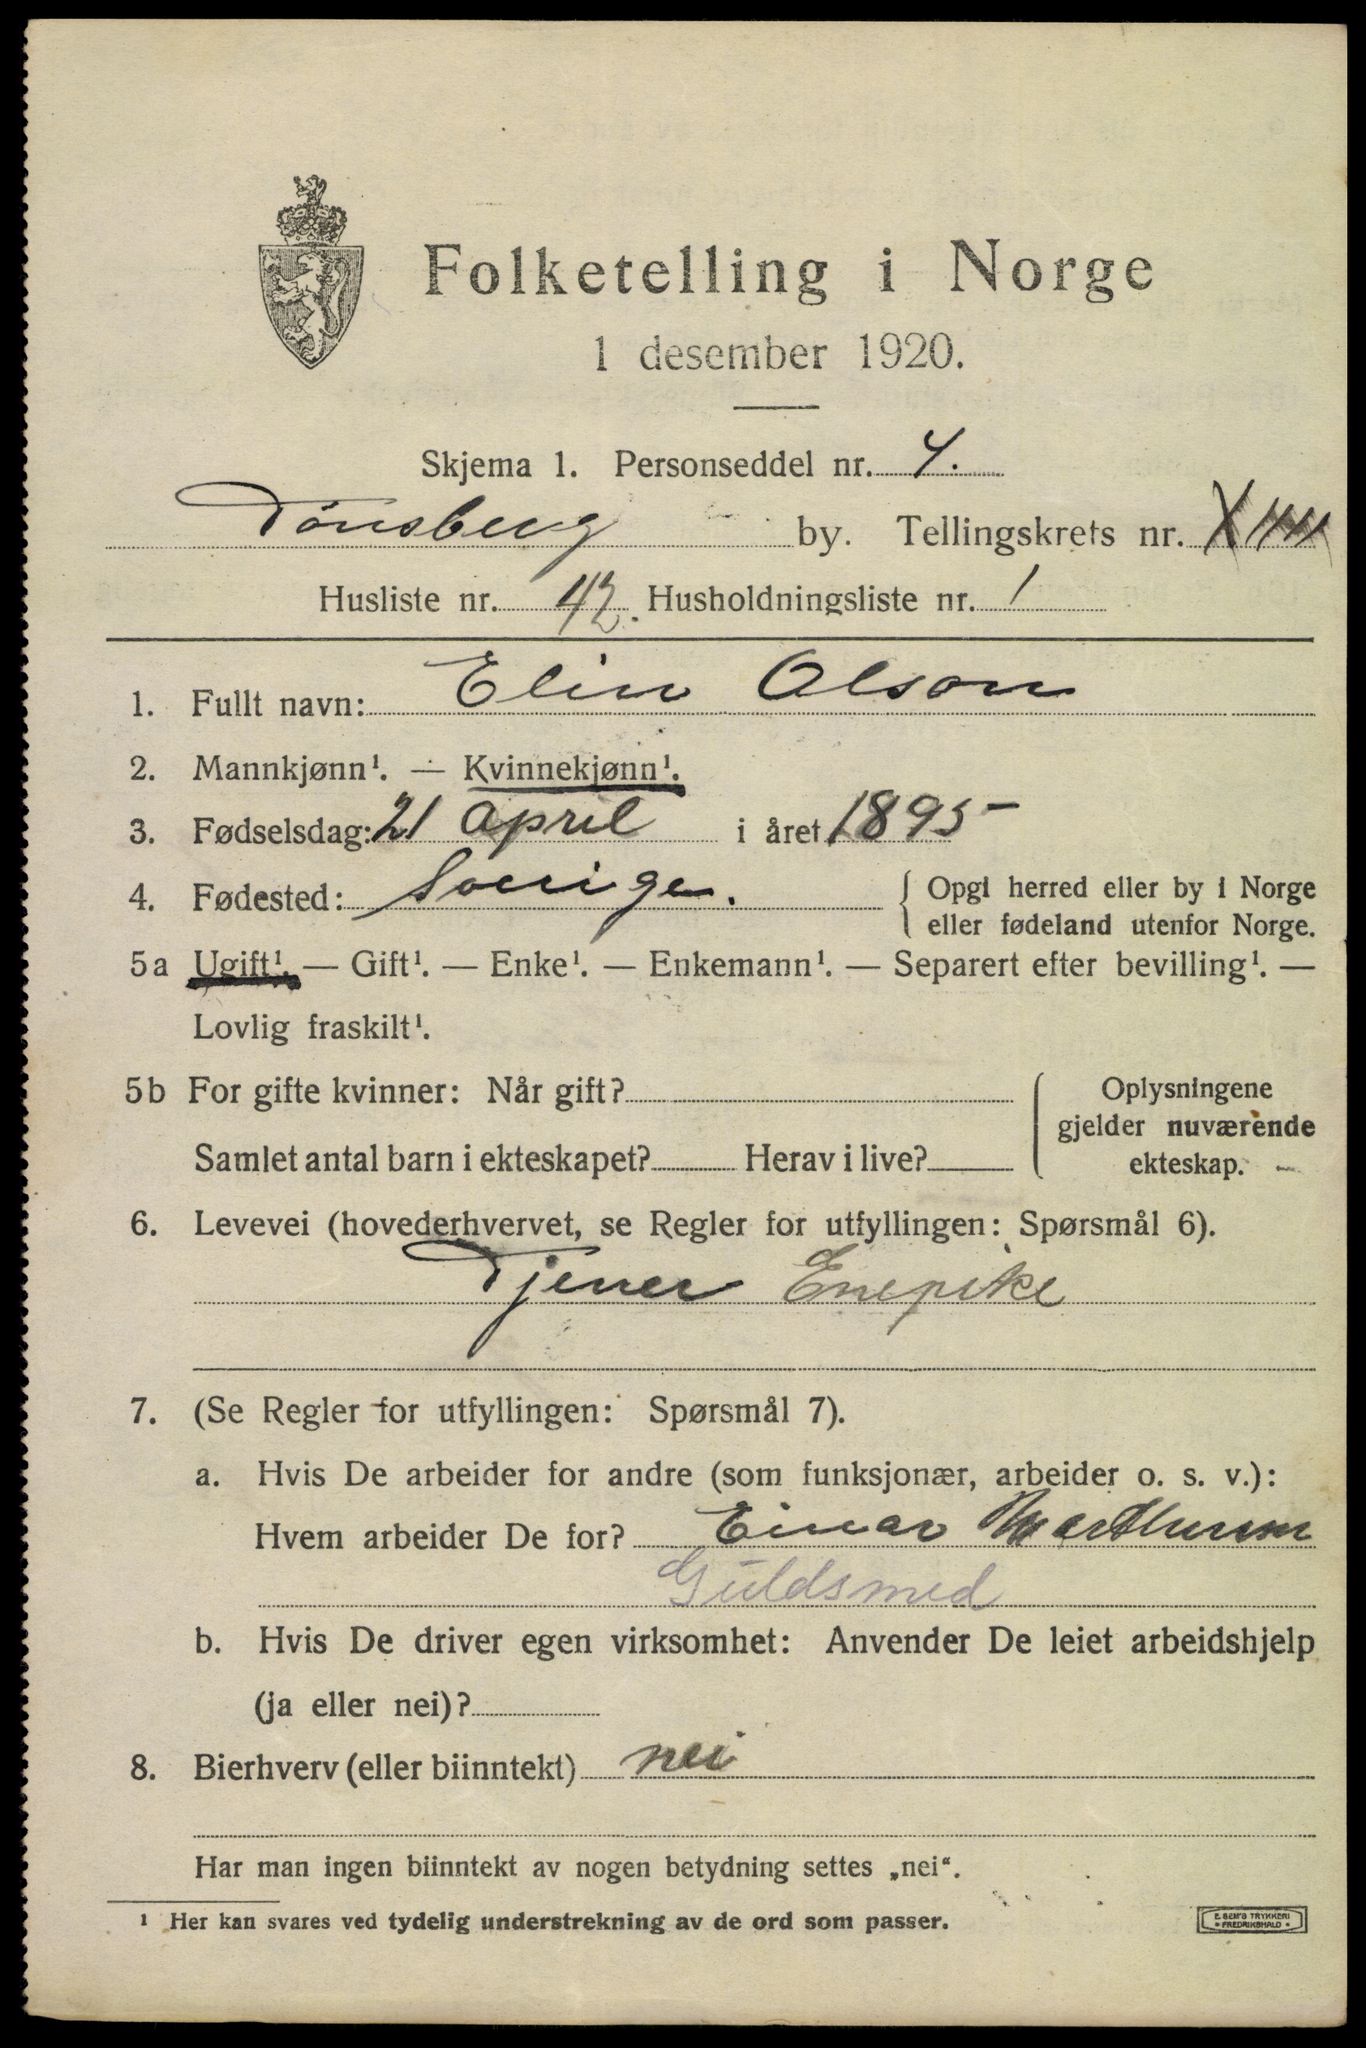 Folketelling i Norge
1 desember 1920.
Skjema 1. Personseddel nr. 4.
Tønsberg by. Tellingskrets nr.
Husliste nr. 42. Husholdningsliste nr. 1
1. Fullt navn: Elin Olson
2. Mannkjønn¹. — Kvinnekjønn¹.
3. Fødselsdag: 21 april i året 1895
4. Fødested: Sverige. { Opgi herred eller by i Norge
eller fødeland utenfor Norge.
5a Ugift¹. — Gift¹. — Enke¹. — Enkemann¹. — Separert efter bevilling¹. —
Lovlig fraskilt¹.
5b For gifte kvinner: Når gift? { Oplysningene
gjelder nuværende
Samlet antal barn i ekteskapet? Herav i live? ekteskap.
6. Levevei (hovederhvervet, se Regler for utfyllingen: Spørsmål 6).
Tjener Enepike
7. (Se Regler for utfyllingen: Spørsmål 7).
a. Hvis De arbeider for andre (som funksjonær, arbeider o. s. v.):
Hvem arbeider De for? Einar
Guldsmed
b. Hvis De driver egen virksomhet: Anvender De leiet arbeidshjelp
(ja eller nei)?
8. Bierhverv (eller biinntekt) nei
Har man ingen biinntekt av nogen betydning settes „nei“.
¹ Her kan svares ved tydelig understrekning av de ord som passer.
E. SEM'S TRYKKERI
FREDRIKSHALD